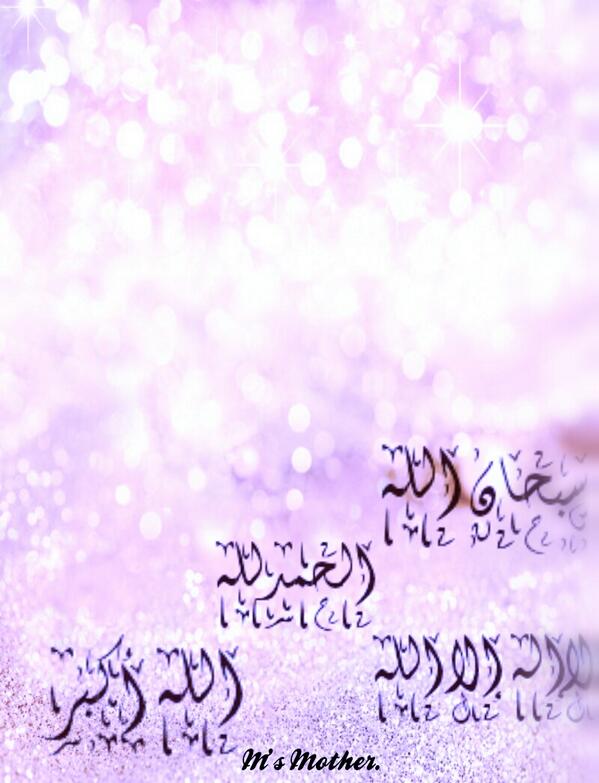 سبحان الله
الحمدلله
لا اله الا الله
الله أكبر
M's Mother.